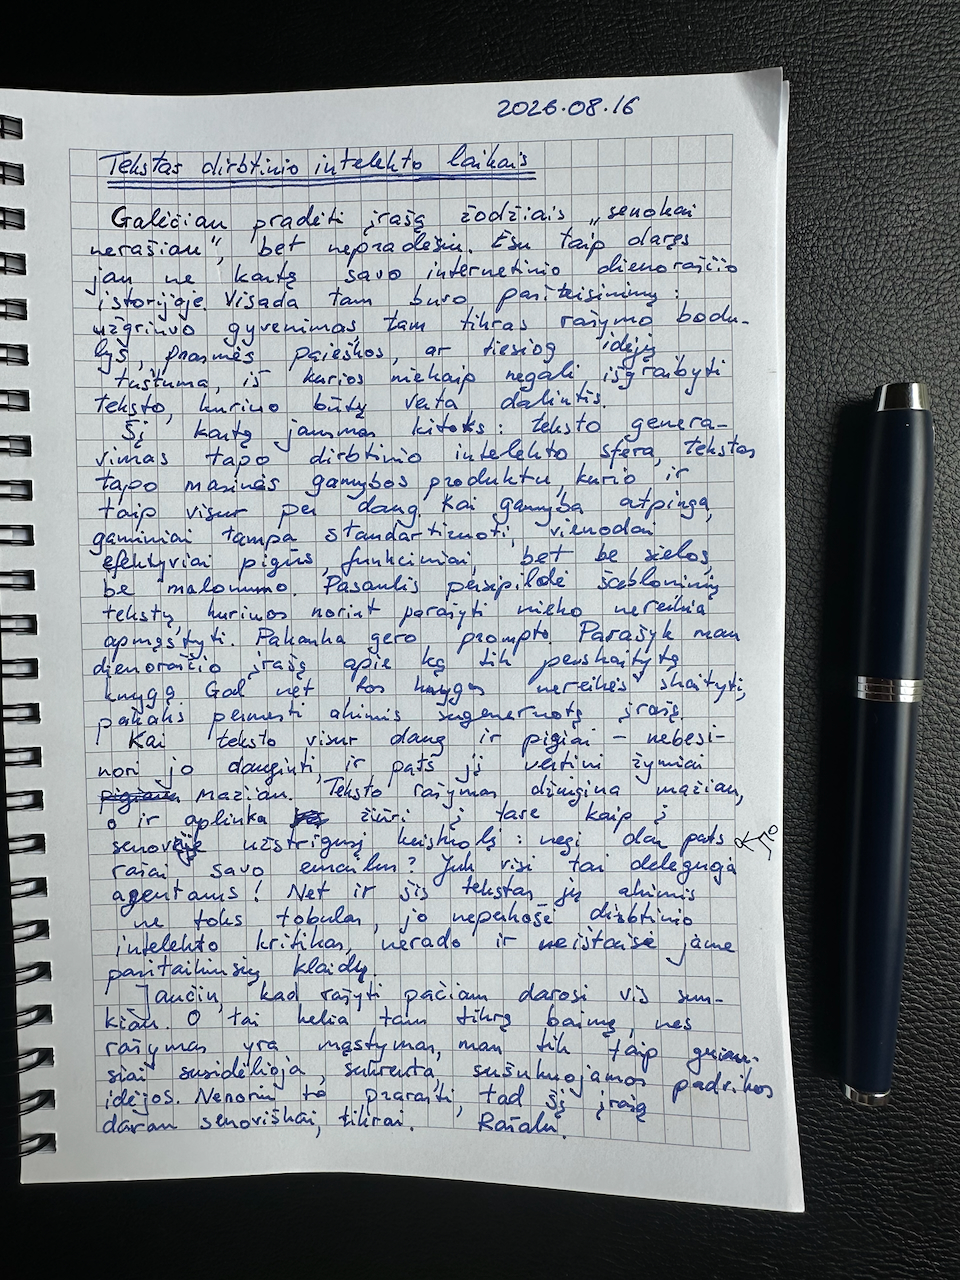 2026.08.16
Tekstas dirbtinio intelekto laikais
Galėčiau pradėti įrašą žodžiais „senokai
nerašiau", bet nepradėsiu. Esu taip daręs
jau ne kartą savo internetinio dienoraščio
istorijoje. Visada tam buvo pasiteisinimų:
užgriuvo gyvenimas, tam tikras rašymo bodu-
lys, prasmės paieškos, ar tiesiog idėjų
tuštuma, iš kurios niekaip negali išgraibyti
teksto, kuriuo būtų verta dalintis.
Šį kartą jausmas kitoks: teksto genera-
vimas tapo dirbtinio intelekto sfera, tekstas
tapo masinės gamybos produktu, kurio ir
taip visur per daug. Kai gamyba atpinga,
gaminiai tampa standartizuoti, vienodai
efektyviai pigūs, funkciniai, bet be sielos,
be malonumo. Pasaulis persipildė šabloninių
tekstų, kuriuos norint parašyti nieko nereikia
apmąstyti. Pakanka gero prompto. Parašyk man
dienoraščio įrašą apie ką tik perskaitytą
knygą. Gal net tos knygos nereikės skaityti,
pakaks permesti akimis sugeneruotą įrašą.
Kai teksto visur daug ir pigiai – nebesi-
nori jo dauginti, ir pats jį vertini žymiai
pigiau mažiau. Teksto rašymas džiugina mažiau,
o ir aplinka žiūri į tave kaip į
senovėje užstrigusį keistuolį: negi dar pats
rašai savo emailus? Juk visi tai deleguoja
agentams! Net ir šis tekstas jų akimis
ne toks tobulas, jo neperkošė dirbtinio
intelekto kritikas, nerado ir neištaisė jame
pasitaikiusių klaidų.
Jaučiu, kad rašyti pačiam darosi vis sun-
kiau. O tai kelia tam tikrą baimę, nes
rašymas yra mąstymas, man tik taip galiau-
siai susidėlioja, sukrenta, sušukuojamos padrikos
idėjos. Nenoriu to prarasti, tad šį įrašą
darau senoviškai, tikrai. Rašalu.